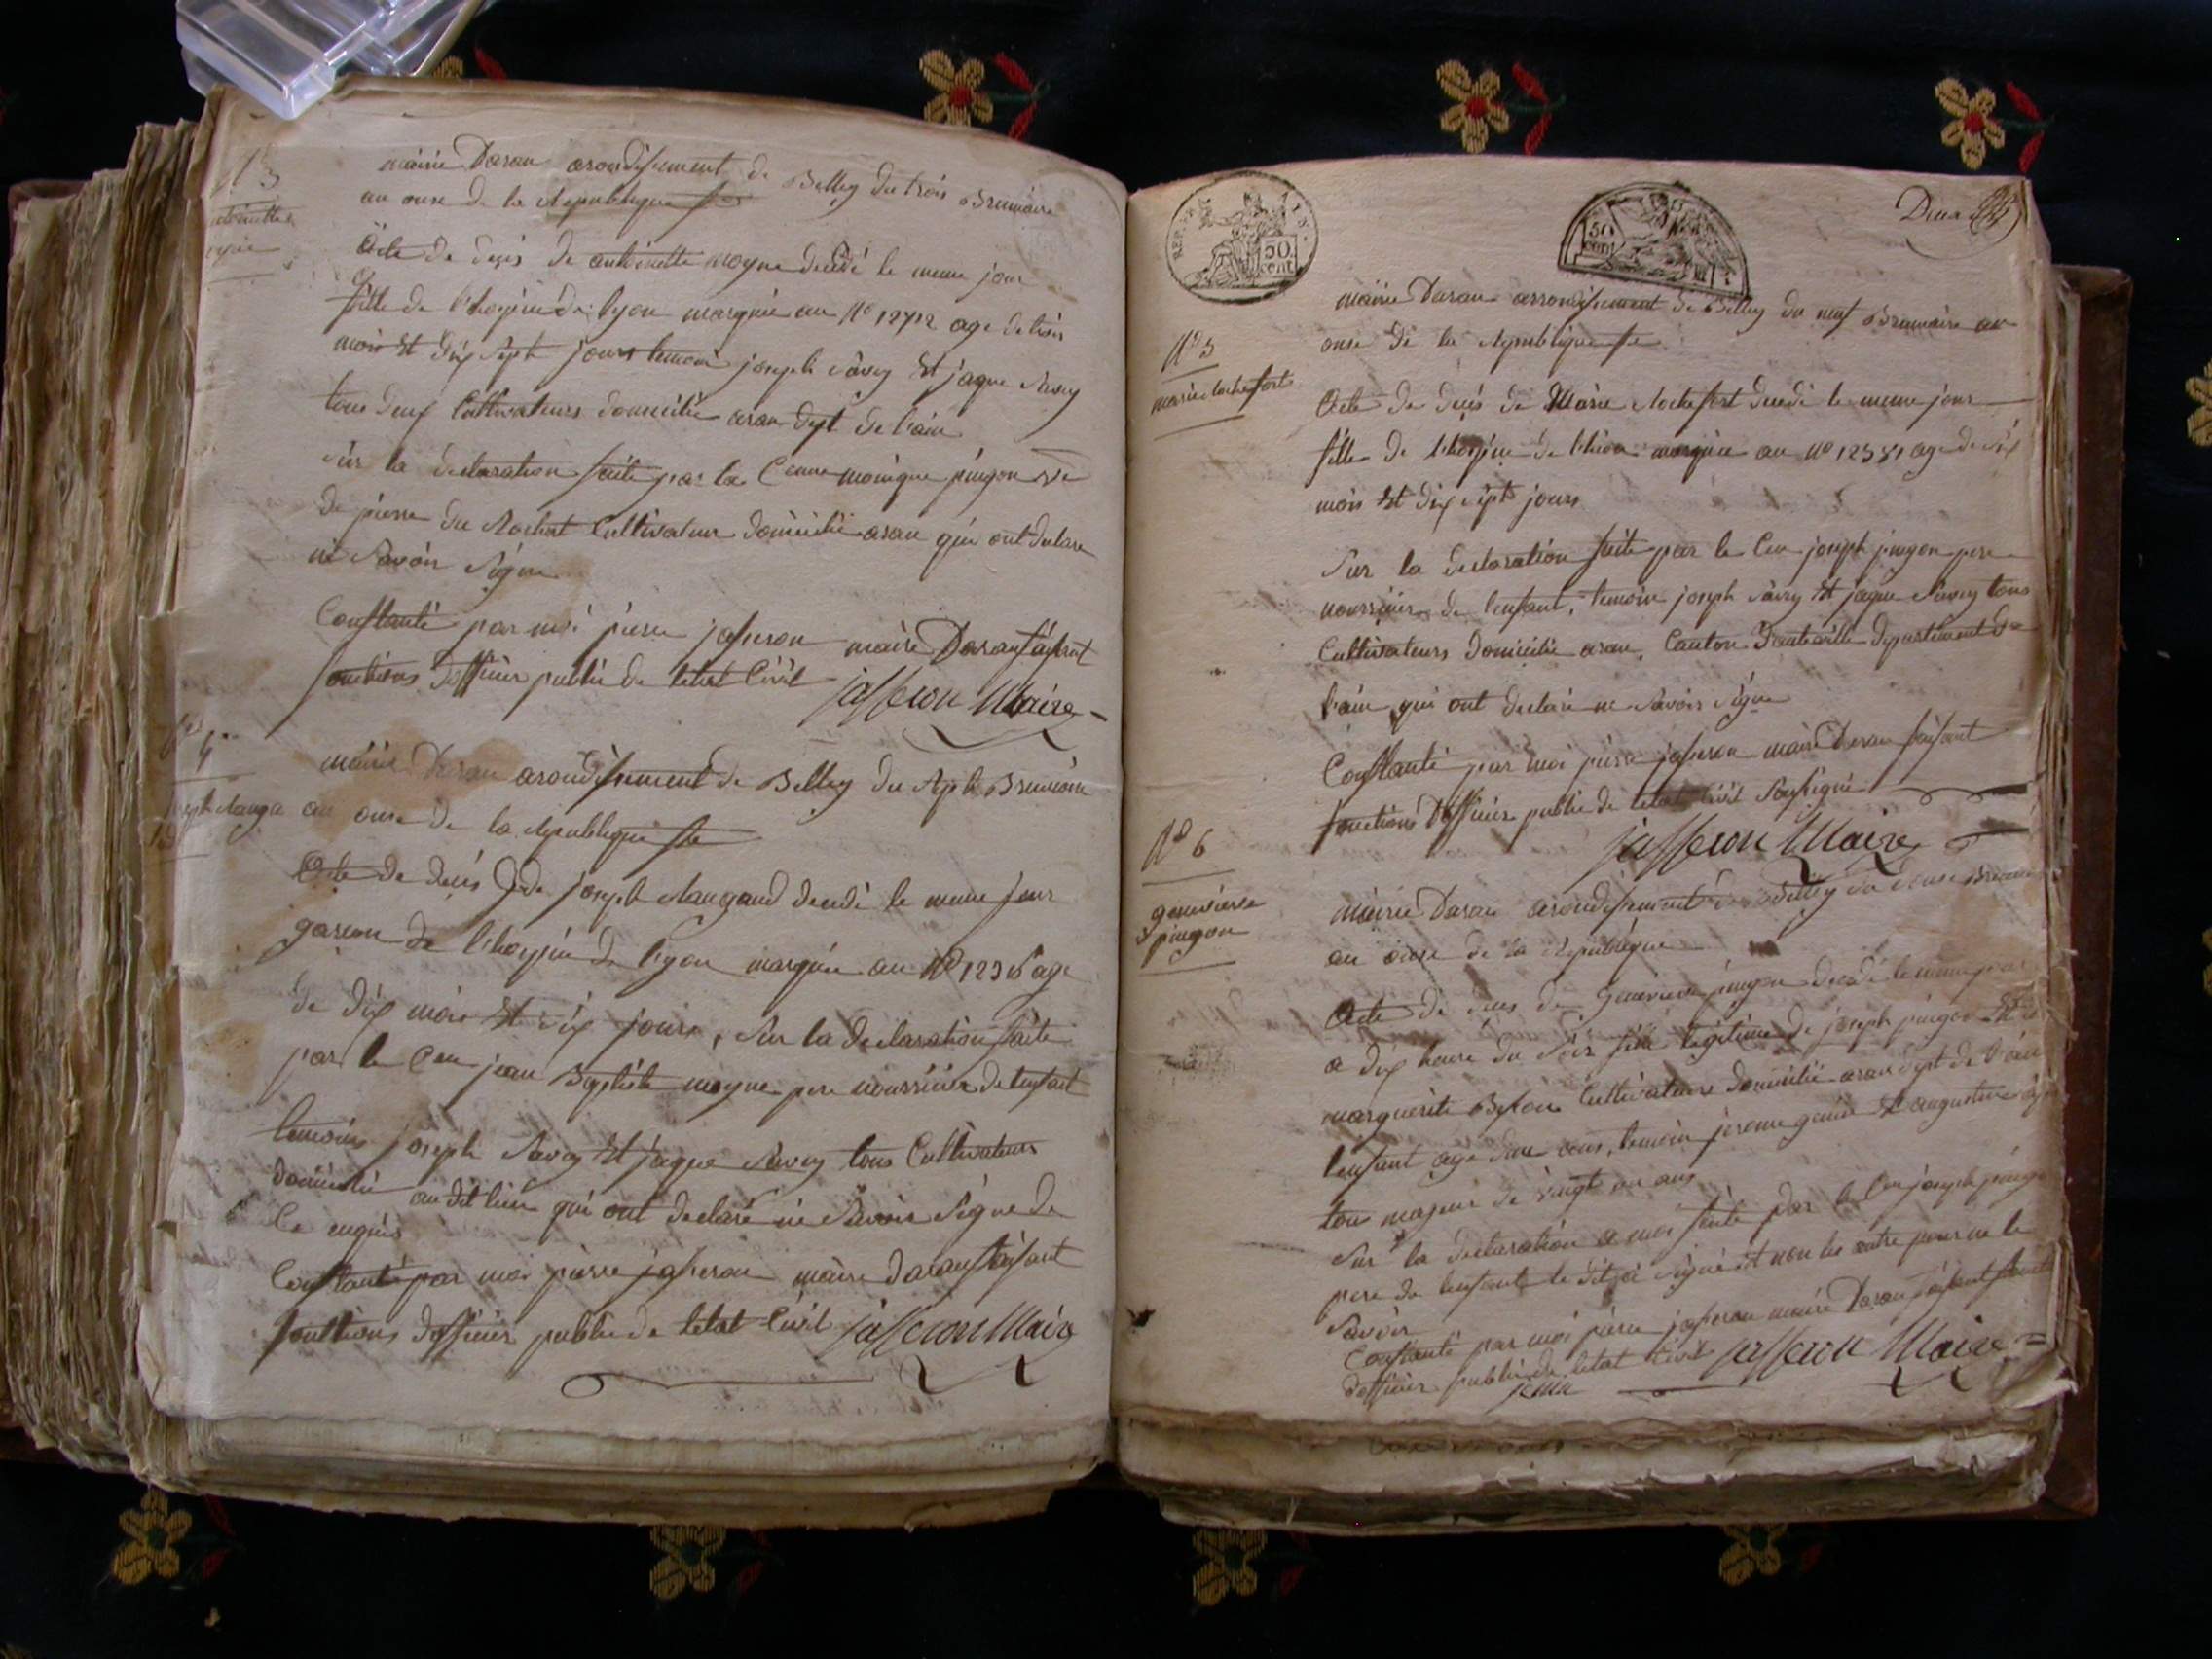 N° 3
mairie Daran arondissement de Belley du trois Brumaire
an onze de la Republique fse
acte de deçés de antoinette moyne decedé le meme jour
fille de l'hospice de lyon marquée au N° 12712 age de trois
mois Et dix sept jours temoin joseph Savey Et jaque Savey
tous deux Cultivateurs domicilié aran dept de l'ain
Sur la declaration faite par la Cenne monique pingon
de pierre du Rochat Cultivateur domicilié aran qui ont declare
ne Savoir Signe
Constanté par moi pierre jasseron maire Daran faisant
fonctions dofficier public de letat Civil jasseron Maire
N° 4
mairie Daran arondissement de Belley du sept Brumaire
an onze de la Republique fse
Acte de decés de joseph Rangaud decedé le meme jour
garcon de l'hospice de lyon marquée au N° age
de dix mois Et six jours, Sur la declaration faite
par le Cen jean Baptiste moyne pere nourricier de lenfant
temoins joseph Savey Et jaque Savey tous Cultivateurs
domicilié au dit lieu qui ont declaré ne Savoir Signe de
Ce enquis
Constanté par moi pierre jasseron maire daran faisant
fonctions dofficier public de letat Civil jasseron Maire
REP. FRA.
50 cent
50 cent
Deux
N° 5
marie Rochefort
mairie Daran arrondissement de Belley du neuf Brumaire an
onze de la Republique fse
Acte de deçés de Marie Rochefort decedé le meme jour
fille de l'hospice de marquée au N° age de six
mois Et dix sept jours
Sur la declaration faite par le Cen joseph pingon pere
nourricier de lenfant, temoin joseph Savey Et jaque Savey tous
Cultivateurs domicilié aran, Canton D'auteville departement de
l'ain, qui ont declaré ne Savoir Signe
Constanté par moi pierre jasseron maire Daran faisant
fonctions Dofficier public de letat Civil Soussigné
jasseron Maire
N° 6
genevieve
pingon
mairie Daran arondissement de Belley du douze Brumaire
an onze de la Republique
Acte de deces de genevieve pingon decedé le meme jour
a dix heure du Soir fille legitime de joseph pingon Et de
marguerite Cultivateurs domicilié aran dept de l'ain
lenfant age dun ans, temoin jerome Et augustin
tous majeur de vingt un ans
Sur la declaration a moi faite par le Cen joseph pingon
pere de lenfant le dit a signé Et non les autre pour ne le
Savoir
Constanté par moi pierre jasseron maire Daran faisant
dofficier public de letat Civil jasseron Maire